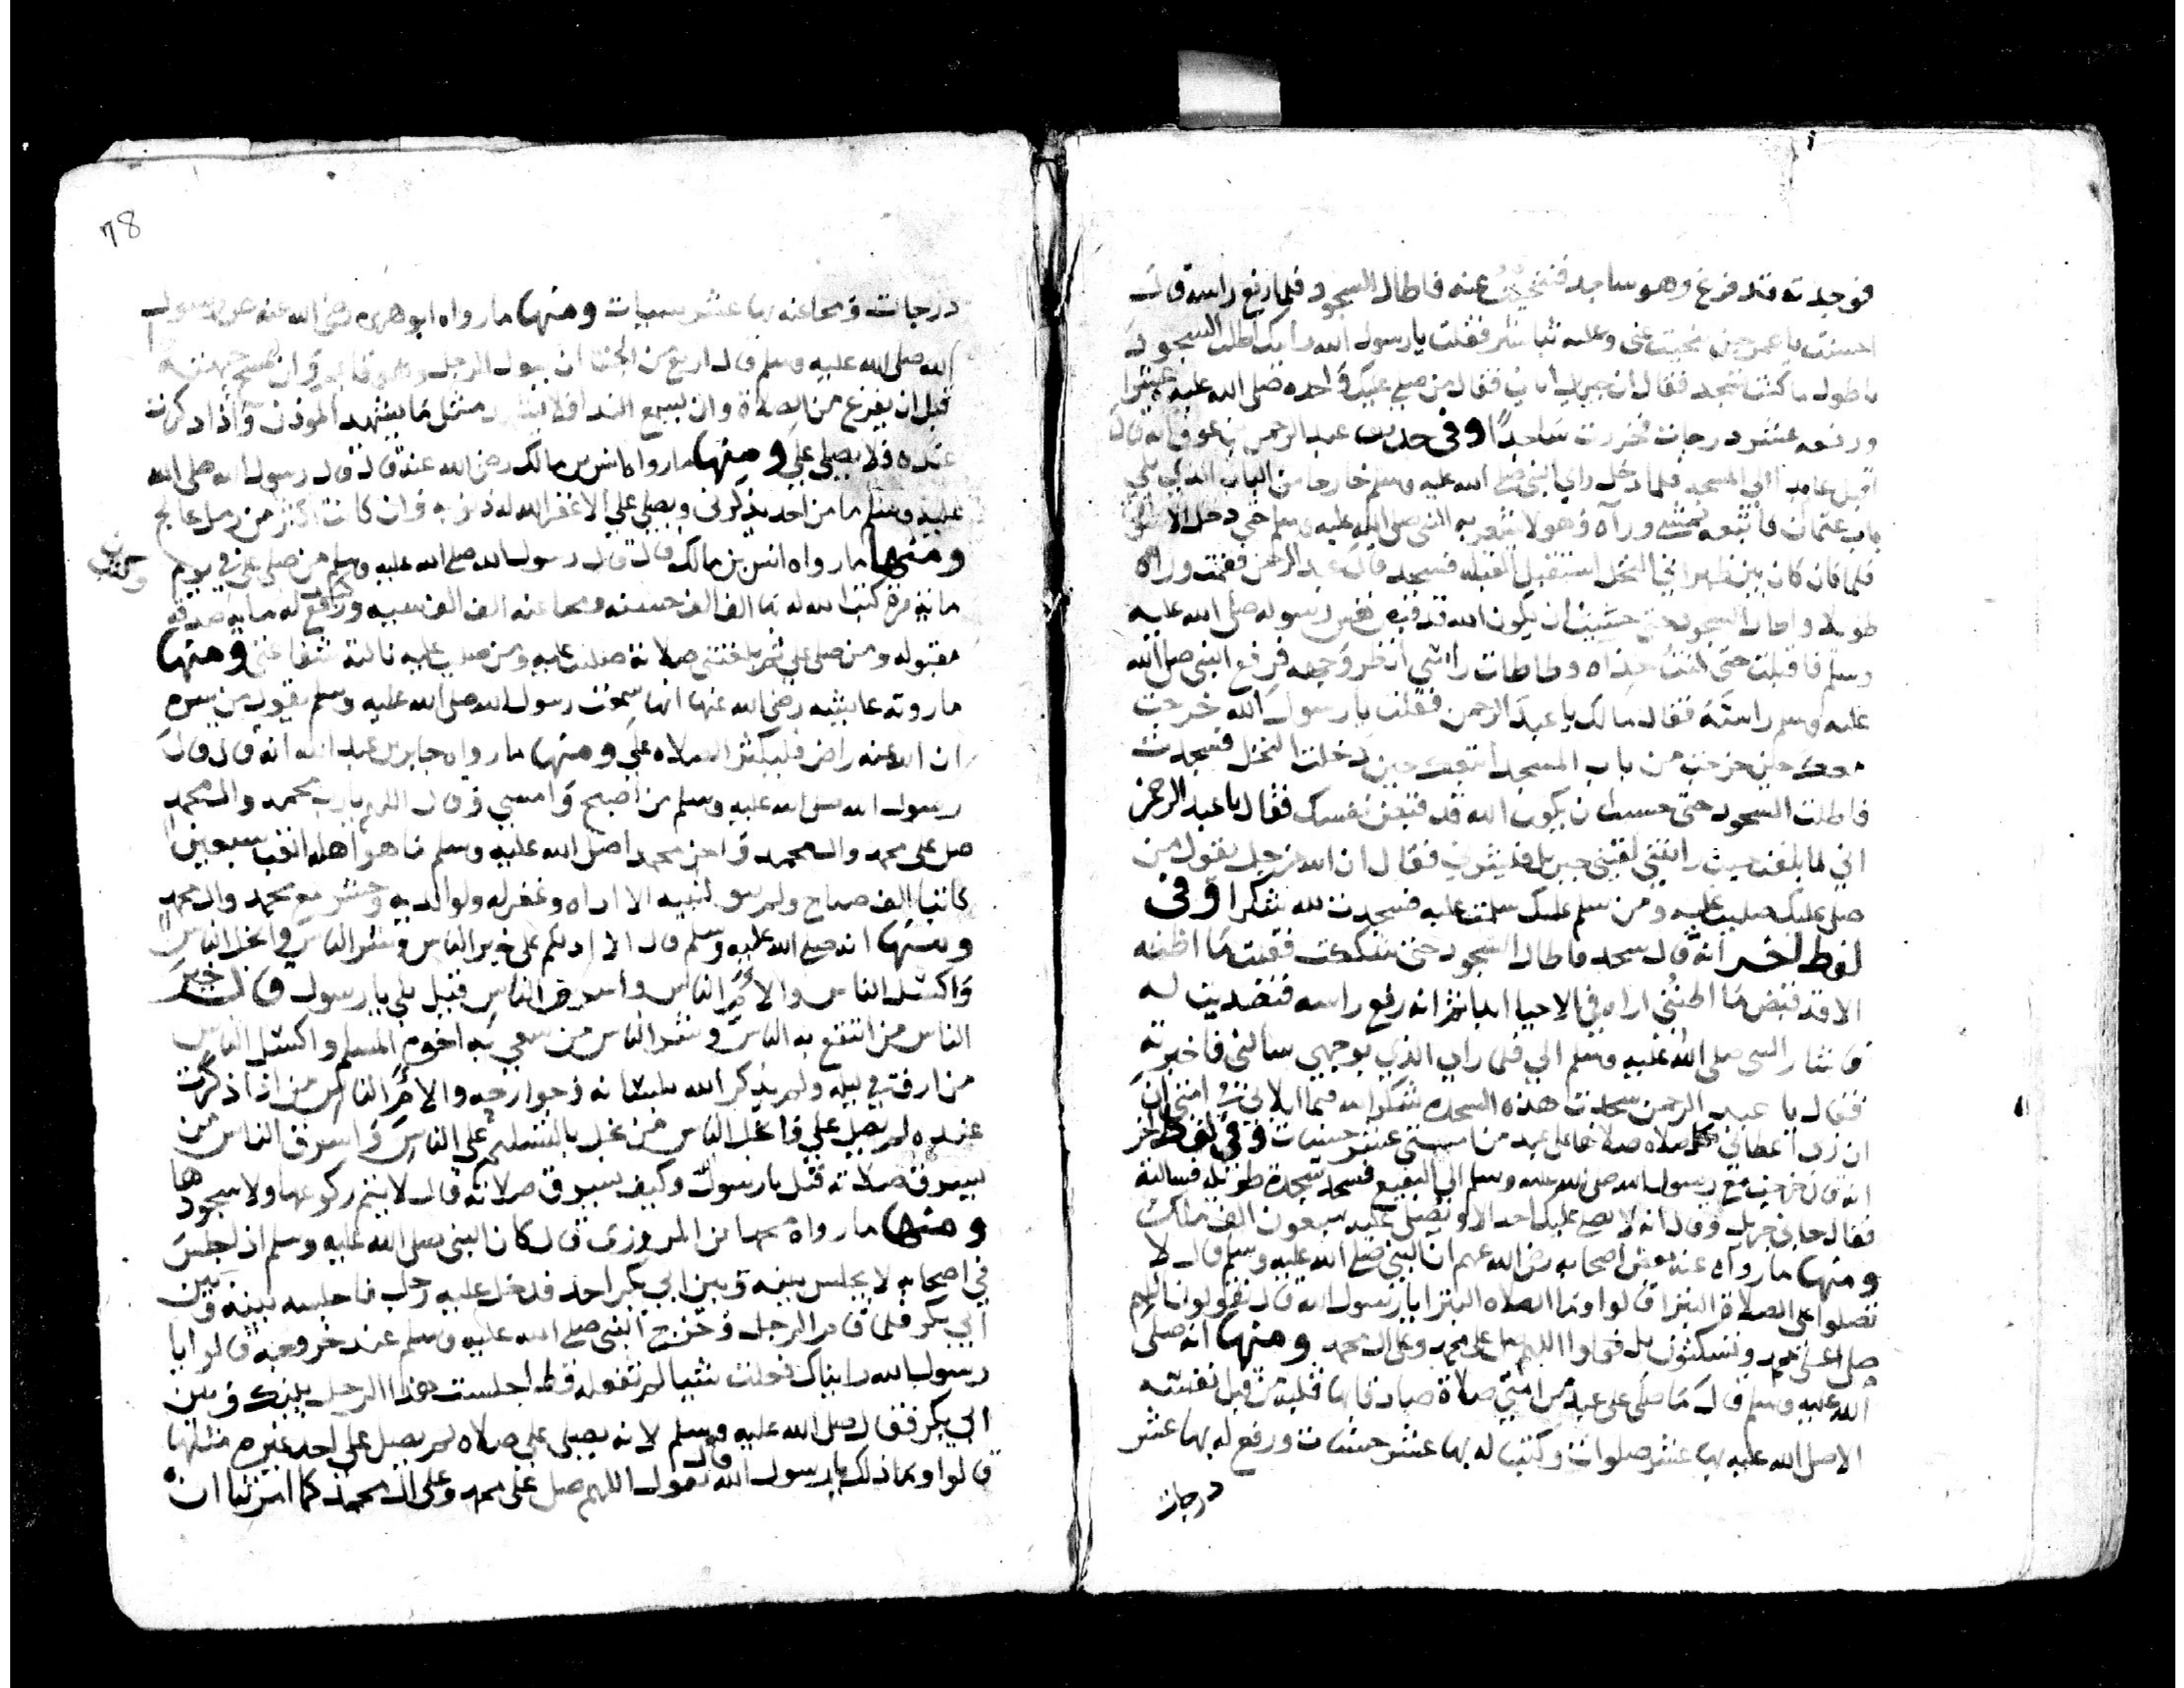 فوجدته قد فرغ وهو ساجد فتنحيت عنه فاطال السجود فلما رفع راسه قال
احسنت يا عمر حين تنحيت عني وعليه فقلت يا رسول الله رايتك اطلت السجود
ما كنت تسجد فقال ان جبريل اتاني فقال من صلى عليك واحده صلى الله عليه عشرا
ورفعه عشر درجات فخررت ساجدا وفي حديث عبد الرحمن بن عوف انه قال
اقبل عامدا الى المسجد فلما دخل راي النبي صلى الله عليه وسلم خارجا من الباب الذي يلي
باب عثمان فاتبعه يمشي ورآه وهو لا يشعر به النبي صلى الله عليه وسلم حتى دخل
فلما كان بين ظهراني النخل استقبل القبله فسجد قال عبد الرحمن فقمت وراه
طويلا واطال السجود حتى حسبت ان يكون الله قد قبض نفس رسوله صلى الله عليه
وسلم فاقبلت حتى جئت حذاه وطاطات راسي انظر وجهه فرفع النبي صلى الله
عليه وسلم راسه فقال مالك يا عبد الرحمن فقلت يا رسول الله خرجت
معك حين خرجت من باب المسجد اتبعتك حين دخلت النخل فسجدت
فاطلت السجود حتى حسبت ان يكون الله قد قبض نفسك فقال يا عبد الرحمن
اني لما بلغت حيث رايتني لقيني جبريل فبشرني فقال ان الله عز وجل يقول من
صلى عليك صليت عليه ومن سلم عليك سلمت عليه فسجدت لله شكرا وفي
لفظ اخر انه قال سجد فاطال السجود حتى شككت فقلت ما اظنه
الا قد قبض ما اراه في الاحيا ابدا ثم انه رفع راسه فتصديت له
فاشار النبي صلى الله عليه وسلم الي فلما راي الذي بوجهي سالني فاخبرته
فقال يا عبد الرحمن سجدت هذه السجده شكرا لله فيما ابلاني في امتي ان
ان ربي اعطاني بكل صلاه صلاها علي عبد من امتي عشر حسنات وفي لفظ اخر
انه قال خرجت مع رسول الله صلى الله عليه وسلم الى البقيع فسجد سجدة طويله فسالته
فقال جاني جبريل وقال انه لا يصلي عليك احد الا ويصلي عليه سبعون الف ملك
ومنها ما رواه عنه بعض اصحابه رضى الله عنهم ان النبي صلى الله عليه وسلم قال لا
تصلوا علي الصلاة البترا قالوا وما الصلاه البترا يا رسول الله قال تقولون اللهم
صل على محمد وتسكتون بل قولوا اللهم صل على محمد وعلى ال محمد ومنها انه صلى
الله عليه وسلم قال ما صلى علي عبد من امتي صلاة صادقا بها قلبه من قبل نفسه
الا صلى الله عليه بها عشر صلوات وكتب له بها عشر حسنات ورفع له بها عشر
درجات
78
درجات ومحا عنه بها عشر سيات ومنها ما رواه ابو هريره رضى الله عنه عن رسول
الله صلى الله عليه وسلم قال اربع من الجفا ان يبول الرجل وهو قايم وان يمسح جبهته
قبل ان يفرغ من الصلاة وان يسمع الندا فلا يشهد مثل ما يشهد الموذن واذا ذكرت
عنده فلا يصلي علي ومنها ما رواه انس بن مالك رضى الله عنه قال قال رسول الله صلى الله
عليه وسلم ما من احد يذكرني ويصلي علي الا غفر الله له ذنوبه وان كانت اكثر من رمل عالج
ومنها ما رواه انس بن مالك قال قال رسول الله صلى الله عليه وسلم من صلى علي في يوم
ماية مرة كتب الله له بها الف الف حسنه ومحا عنه الف الف سيه ورفع له مايه صدقه
مقبوله ومن صلى علي ثم بلغتني صلاته صليت عليه ومن صليت عليه نالته شفاعتي ومنها
ما روته عايشه رضى الله عنها انها سمعت رسول الله صلى الله عليه وسلم يقول من سره
ان الله عنه راض فليكثر الصلاه علي ومنها ما رواه جابر بن عبد الله انه قال قال
رسول الله صلى الله عليه وسلم من اصبح وامسي وقال اللهم يا رب محمد وال محمد
صل على محمد وال محمد واجز محمدا صلى الله عليه وسلم ما هو اهله اتعب سبعين
كاتبا الف صباح ولم يبق لنبيه الا اداه وغفر له ولوالديه وحشر مع محمد وال محمد
ومنها انه صلى الله عليه وسلم قال الا ادلكم على خير الناس وشر الناس وابخل الناس
واكسل الناس والام الناس واسرق الناس قيل بلى يا رسول قال خير
الناس من انتفع به الناس وشر الناس من سعي باخيه المسلم واكسل الناس
من ارق في ليله ولم يذكر الله بلسانه وجوارحه والام الناس من اذا ذكرت
عنده لم يصل علي وابخل الناس من بخل بالتسليم على الناس واسرق الناس من
يسرق صلاته قيل يا رسول وكيف يسرق صلاته قال لا يتم ركوعها ولا سجودها
ومنها ما رواه المروزي قال كان النبي صلى الله عليه وسلم اذا جلس
في اصحابه لا يجلس بينه وبين ابي بكر احد فدخل عليه رجل فاجلسه بينه وبين
ابي بكر فلما قام الرجل وخرج النبي صلى الله عليه وسلم عند خروجه قالوا يا
رسول الله رايناك فعلت شيا لم تفعله قط اجلست هذا الرجل بينك وبين
ابي بكر فقال صلى الله عليه وسلم لانه يصلي علي صلاه لم يصل علي احد غيره مثلها
قالوا وما ذلك يا رسول الله قال يقول اللهم صل على محمد وعلى ال محمد كما امرتنا ان